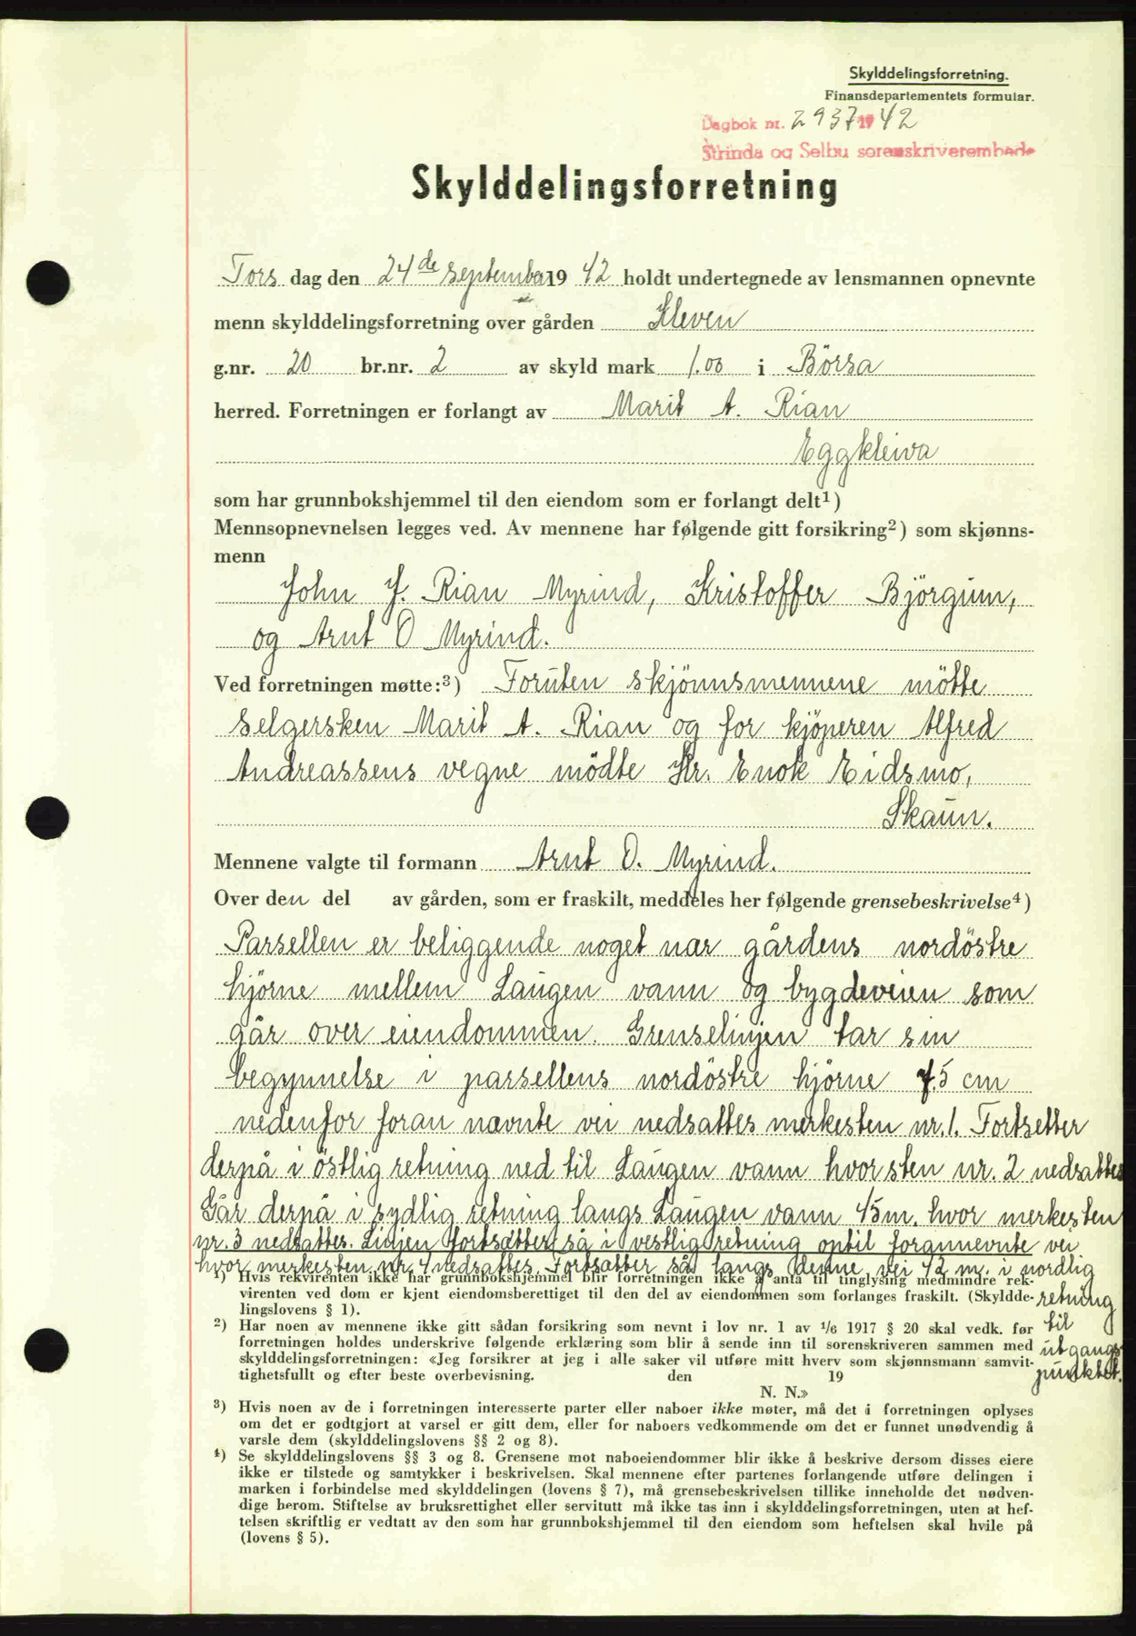 Skylddelingsforretning.
Finansdepartementets formular.
Dagbok nr. 2937 1942
Strinda og Selbu sorenskriverembede
Skylddelingsforretning
Tors dag den 24de september 1942 holdt undertegnede av lensmannen opnevnte
menn skylddelingsforretning over gården Kleven
g.nr. 20 br.nr. 2 av skyld mark 1.00 i Börsa
herred. Forretningen er forlangt av Marit A. Rian
Eggkleiva
som har grunnbokshjemmel til den eiendom som er forlangt delt¹)
Mennsopnevnelsen legges ved. Av mennene har følgende gitt forsikring²) som skjønns-
menn
John J. Rian Myrind, Kristoffer Björgum,
og Arnt O Myrind.
Ved forretningen møtte:³) Foruten skjönnsmennene mötte
selgersken Marit A. Rian og for kjöperen Alfred
Andreassens vegne mödte Hr. Enok Eidsmo,
Skaun.
Mennene valgte til formann Arnt O. Myrind.
Over den del av gården, som er fraskilt, meddeles her følgende grensebeskrivelse⁴)
Parsellen er beliggende noget nær gårdens nordöstre
hjörne mellem Laugen vann og bygdeveien som
går over eiendommen. Grenselinjen tar sin
begynnelse i parsellens nordöstre hjörne 75 cm
nedenfor foran nævnte vei nedsattes merkesten nr. 1. Fortsetter
derpå i östlig retning ned til Laugen vann hvor sten nr. 2 nedsattes
Går derpå i sydlig retning langs Laugen vann 45m. hvor merkesten
nr. 3 nedsattes. Linjen fortsætter så i vestlig retning optil forannevnte vei
hvor merkesten nr. 4 nedsattes. Fortsætter så langs denne vei 42 m. i nordlig
retning
til
utgangs-
punktet.
¹) Hvis rekvirenten ikke har grunnbokshjemmel blir forretningen ikke å anta til tinglysing medmindre rek-
virenten ved dom er kjent eiendomsberettiget til den del av eiendommen som forlanges fraskilt. (Skyldde-
lingslovens § 1).
²) Har noen av mennene ikke gitt sådan forsikring som nevnt i lov nr. 1 av 1/6 1917 § 20 skal vedk. før
forretningen holdes underskrive følgende erklæring som blir å sende inn til sorenskriveren sammen med
skylddelingsforretningen: «Jeg forsikrer at jeg i alle saker vil utføre mitt hverv som skjønnsmann samvit-
tighetsfullt og efter beste overbevisning. den 19
N. N.»
³) Hvis noen av de i forretningen interesserte parter eller naboer ikke møter, må det i forretningen oplyses
om det er godtgjort at varsel er gitt dem, eller for naboers vedkommende om det er funnet unødvendig å
varsle dem (skylddelingslovens §§ 2 og 8).
⁴) Se skylddelingslovens §§ 3 og 8. Grensene mot naboeiendommer blir ikke å beskrive dersom disses eiere
ikke er tilstede og samtykker i beskrivelsen. Skal mennene efter partenes forlangende utføre delingen i
marken i forbindelse med skylddelingen (lovens § 7), må grensebeskrivelsen tillike inneholde det nødven-
dige herom. Stiftelse av bruksrettighet eller servitutt må ikke tas inn i skylddelingsforretningen, uten at hef-
telsen skriftlig er vedtatt av den som har grunnbokshjemmel til den eiendom som heftelsen skal hvile på
(lovens § 5).